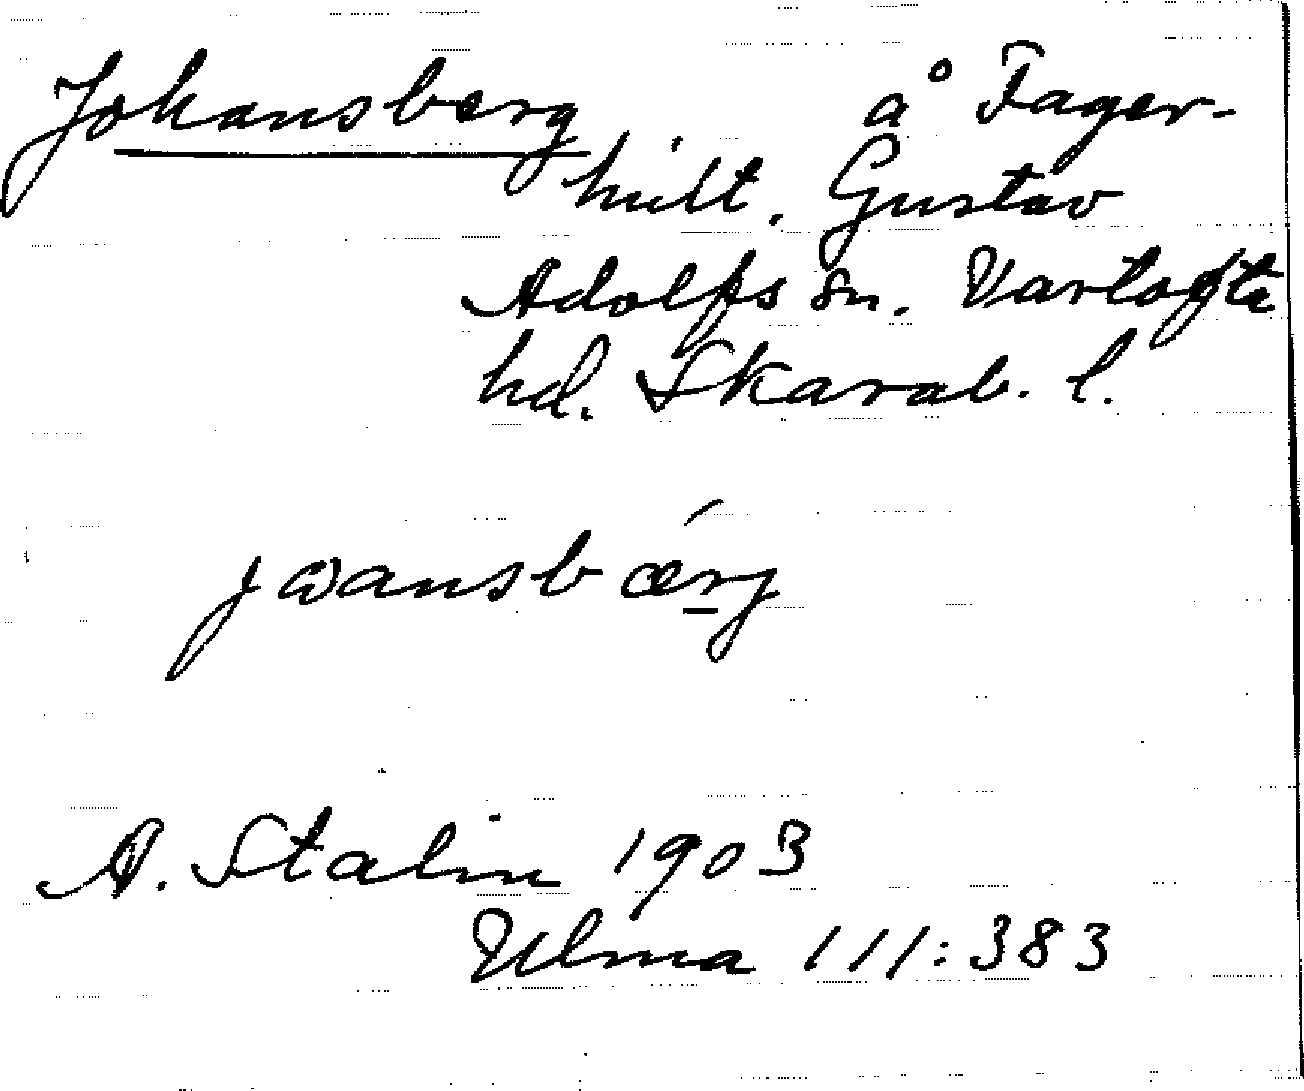 Johansberg å Fager-
hult. Gustav
Adolfs sn. Vartofta
hd. Skarab. l.
jωansbǽrj
A. Stalin 1903
Ulma 111:383